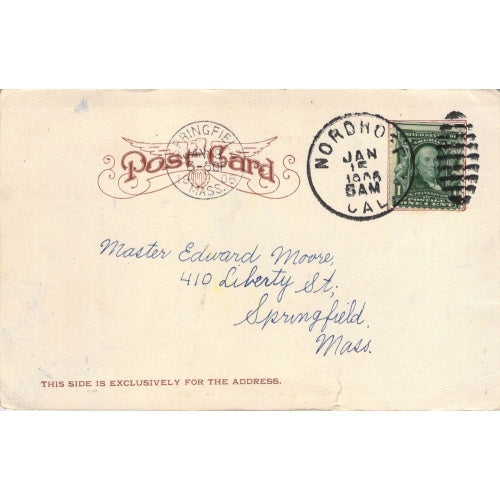 SPRINGFIELD
MASS.
Post Card
NORDHOFF
JAN
15
1906
5AM
CAL.
1
Master Edward Moore,
410 Liberty St,
Springfield,
Mass.
THIS SIDE IS EXCLUSIVELY FOR THE ADDRESS.